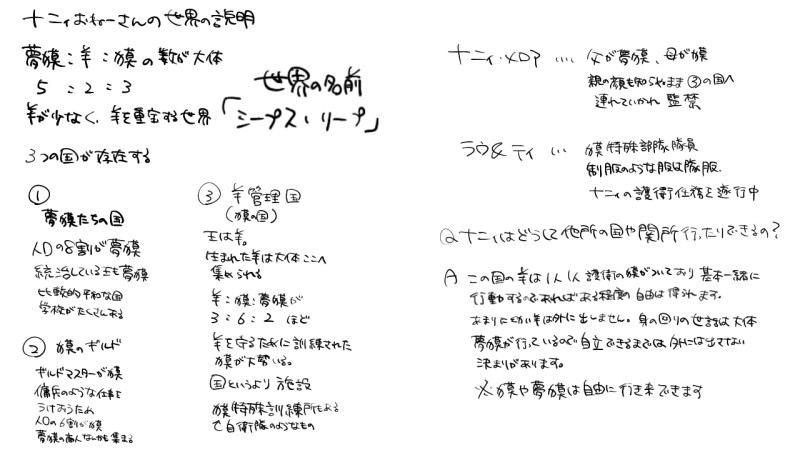 ナニィおねーさんの世界の説明
夢獏:羊:獏の数が大体
5:2:3
羊が少なく、羊を重宝する世界
世界の名前
「シープス・リープ」
3つの国が存在する
①
夢獏たちの国
人口の8割が夢獏
統治している王も夢獏
比較的平和な国
学校がたくさんある
② 獏のギルド
ギルドマスターが獏
傭兵のような仕事を
うけおうため
人口の6割が獏
夢獏の商人なんかも集まる
③ 羊管理国
(獏の国)
王は羊。
生まれた羊は大体ここへ
集められる
羊:獏:夢獏が
3:6:2 ほど
羊を守るために訓練された
獏が大勢いる。
国というより施設
獏特殊訓練所もある
で自衛隊のようなもの
ナニィ・メロア … 父が夢獏、母が獏
親の顔も知らぬまま③の国へ
連れていかれ監禁
ラウ&ティ … 獏特殊部隊隊員
制服のような服は隊服
ナニィの護衛任務を遂行中
Q ナニィはどうして他所の国や関所行ったりできるの?
A この国の羊は1人1人護衛の獏がついており基本一緒に
行動するのであればある程度の自由は得れます。
あまりに幼い羊は外に出しません。身の回りの世話は大体
夢獏が行っているので自立できるまでは外には出てない
決まりがあります。
※獏や夢獏は自由に行き来できます